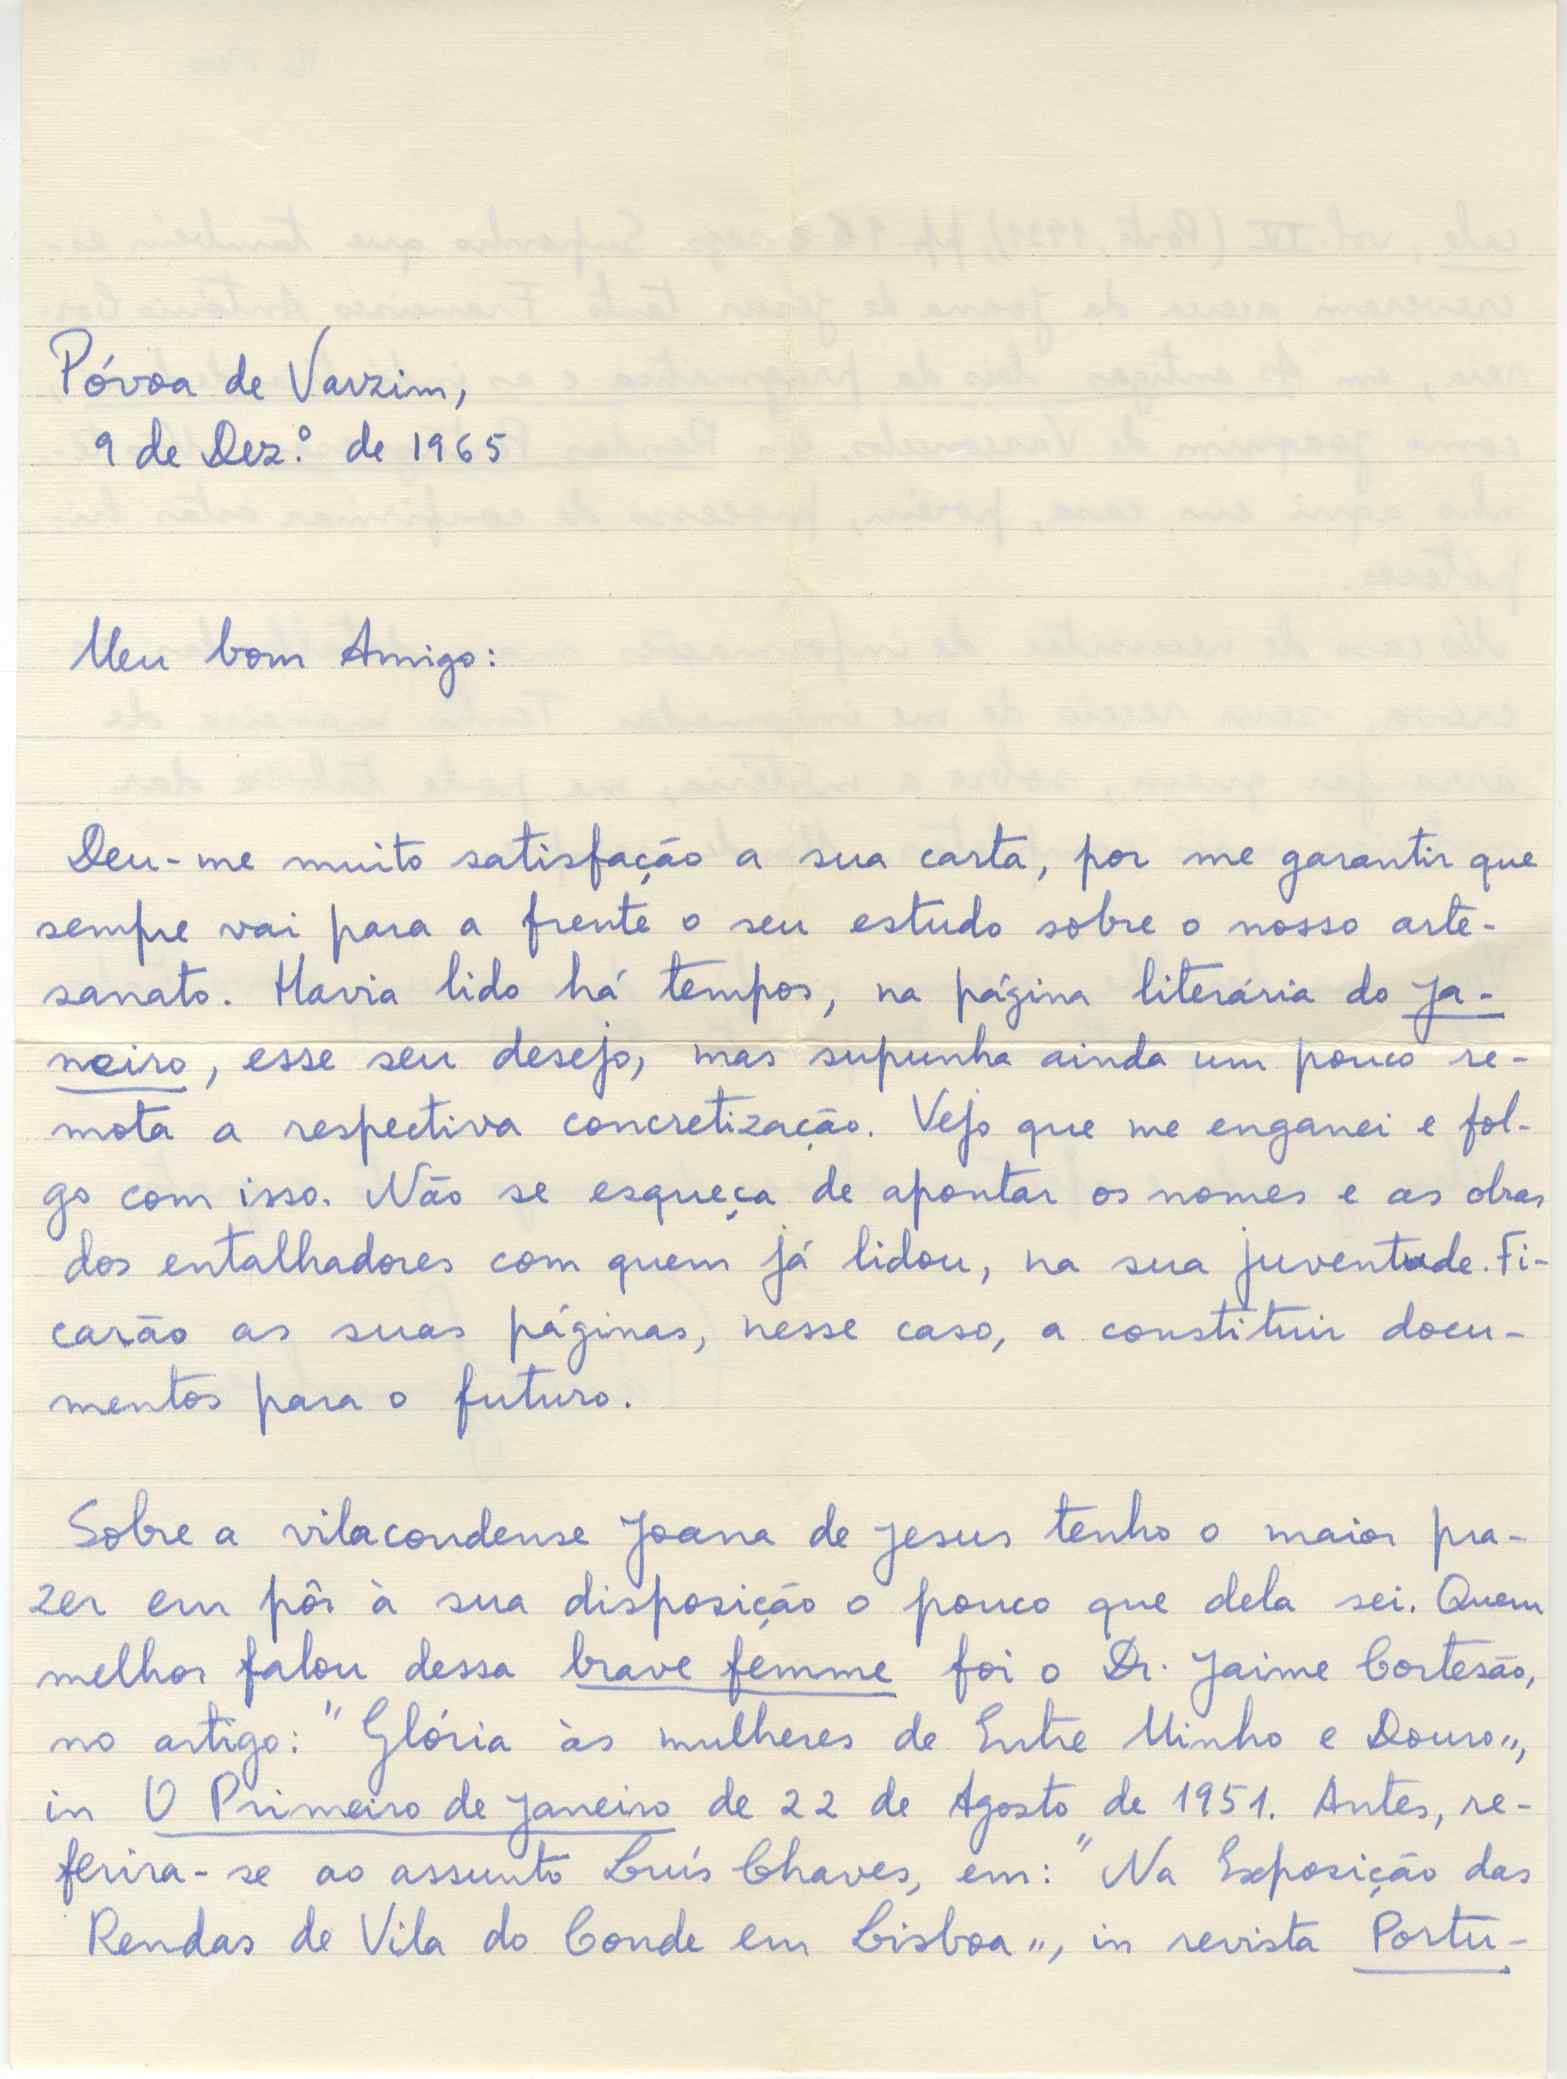 Póvoa de Varzim,
9 de Dez.º de 1965
Meu bom Amigo:
Deu-me muito satisfação a sua carta, por me garantir que
sempre vai para a frente o seu estudo sobre o nosso arte-
sanato. Havia lido há tempos, na página literária do Ja-
neiro, esse seu desejo, mas supunha ainda um pouco re-
mota a respectiva concretização. Vejo que me enganei e fol-
go com isso. Não se esqueça de apontar os nomes e as obras
dos entalhadores com quem já lidou, na sua juventude. Fi-
carão as suas páginas, nesse caso, a constituir docu-
mentos para o futuro.
Sobre a vilacondense Joana de Jesus tenho o maior pra-
zer em pôr à sua disposição o pouco que dela sei. Quem
melhor falou dessa brave femme foi o Dr. Jaime Cortesão,
no artigo: "Glória às mulheres de Entre Minho e Douro",
in O Primeiro de Janeiro de 22 de Agosto de 1951. Antes, re-
ferira-se ao assunto Luís Chaves, em: "Na Exposição das
Rendas de Vila do Conde em Lisboa", in revista Portu-